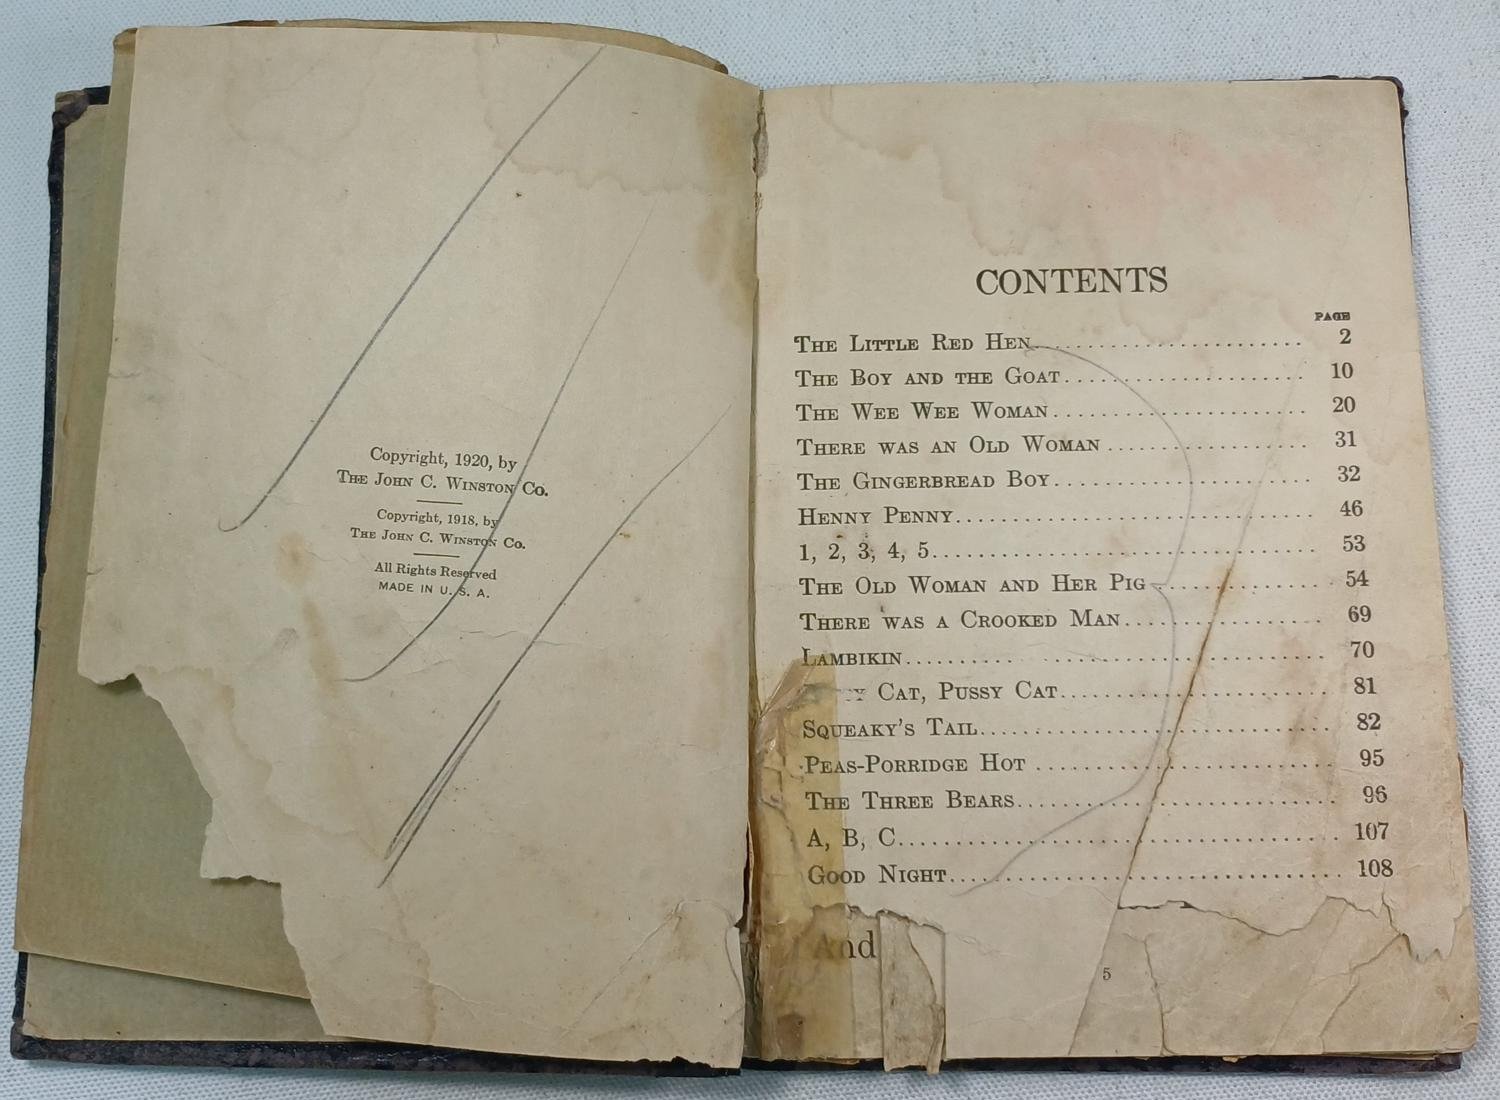 Copyright, 1920, by
THE JOHN C. WINSTON CO.
Copyright, 1918, by
THE JOHN C. WINSTON CO.
All Rights Reserved
MADE IN U. S. A.
CONTENTS
PAGE
THE LITTLE RED HEN........................ 2
THE BOY AND THE GOAT...................... 10
THE WEE WEE WOMAN....................... 20
THERE WAS AN OLD WOMAN.................. 31
THE GINGERBREAD BOY...................... 32
HENNY PENNY.............................. 46
1, 2, 3, 4, 5................................ 53
THE OLD WOMAN AND HER PIG................ 54
THERE WAS A CROOKED MAN.................. 69
LAMBIKIN.................................. 70
CAT, PUSSY CAT....................... 81
SQUEAKY'S TAIL............................ 82
PEAS-PORRIDGE HOT........................ 95
THE THREE BEARS.......................... 96
A, B, C.................................... 107
GOOD NIGHT............................... 108
And
5